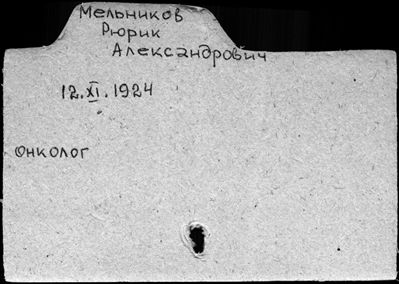 Мельников
Рюрик
Александрович
12.XI.1924
онколог